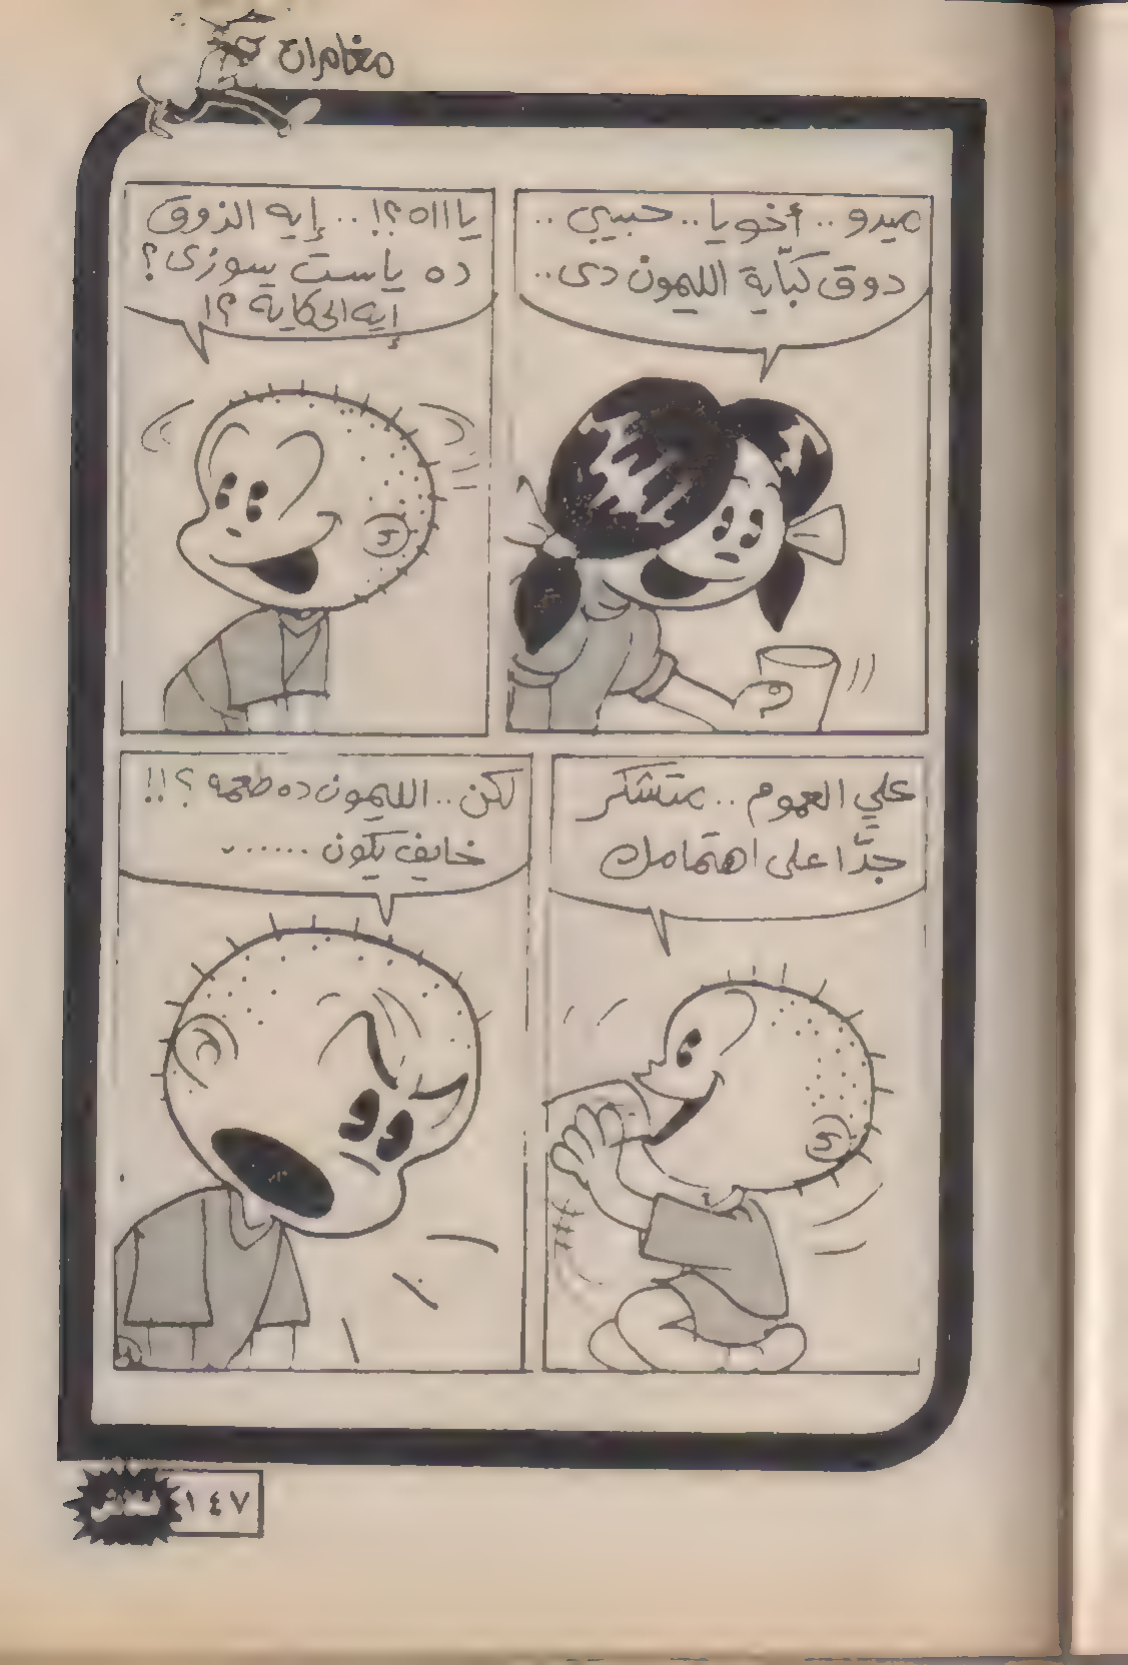 مغامرات
ميدو .. أخويا .. حبيبي ..
دوق كبّاية الليمون دى ..
يا ااه ؟! .. إيه الذوق
ده ياست سوزى ؟
إيه الحكاية ؟!
علي العموم .. متشكر
جدًّا على اهتمامك
لكن .. الليمون ده طعمه ؟!!
خايف يكون ......
فلاش
١٤٧